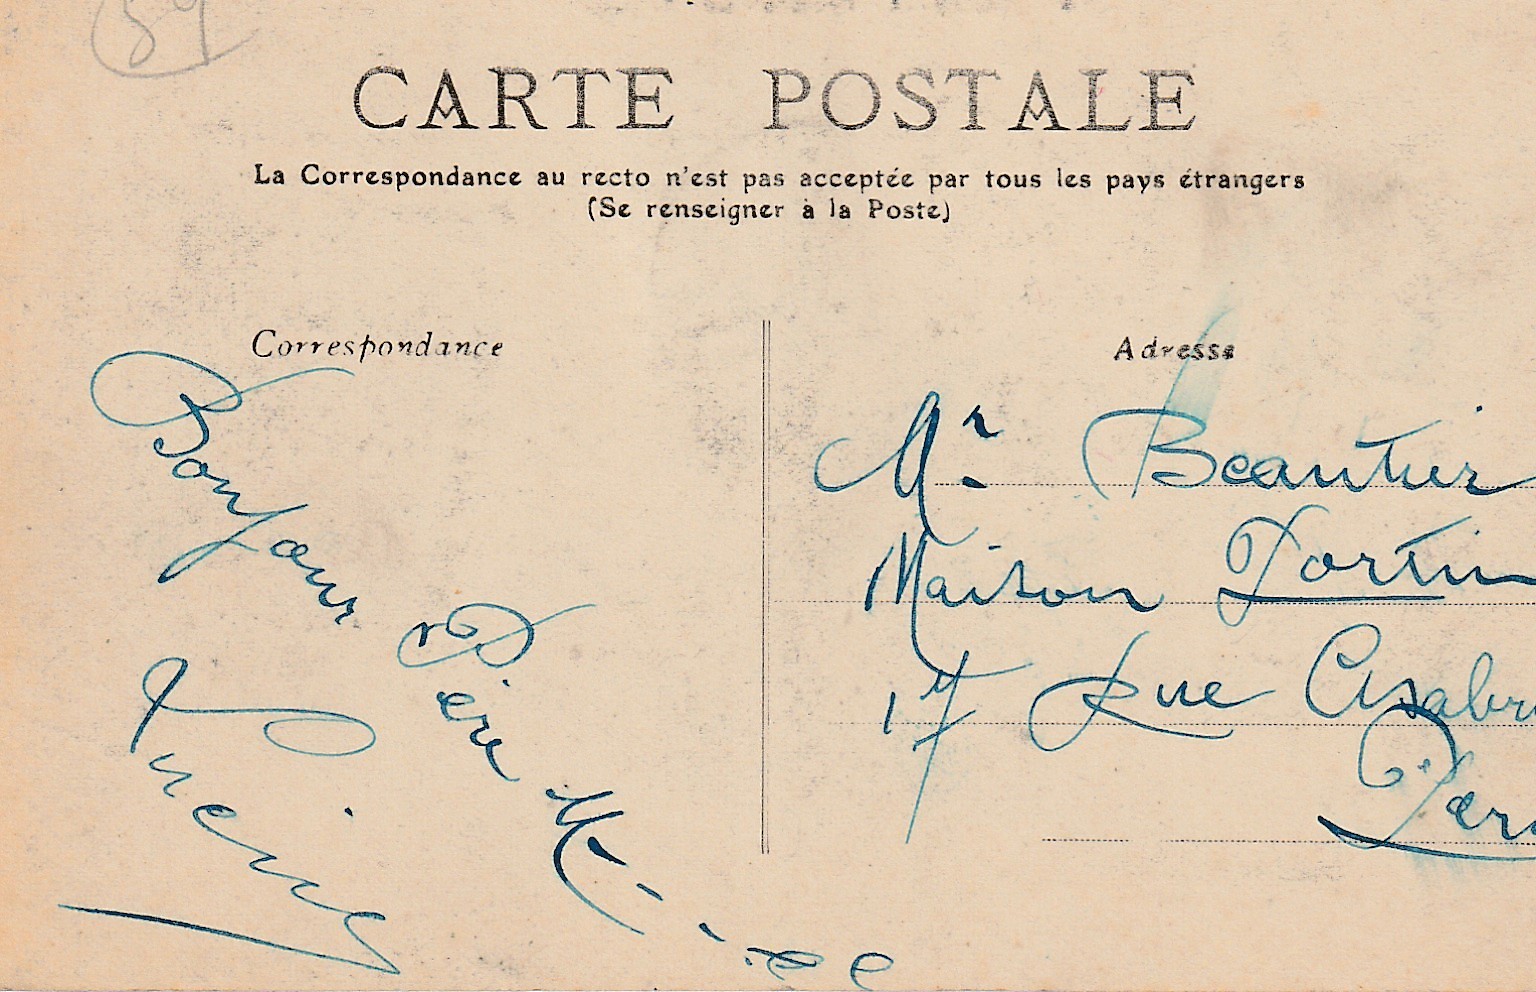 59
CARTE POSTALE
La Correspondance au recto n'est pas acceptée par tous les pays étrangers
(Se renseigner à la Poste)
Correspondance
Bonjour Père
Lucien
Adresse
Mr Beautier
Maison Fortin
17 Rue
Paris